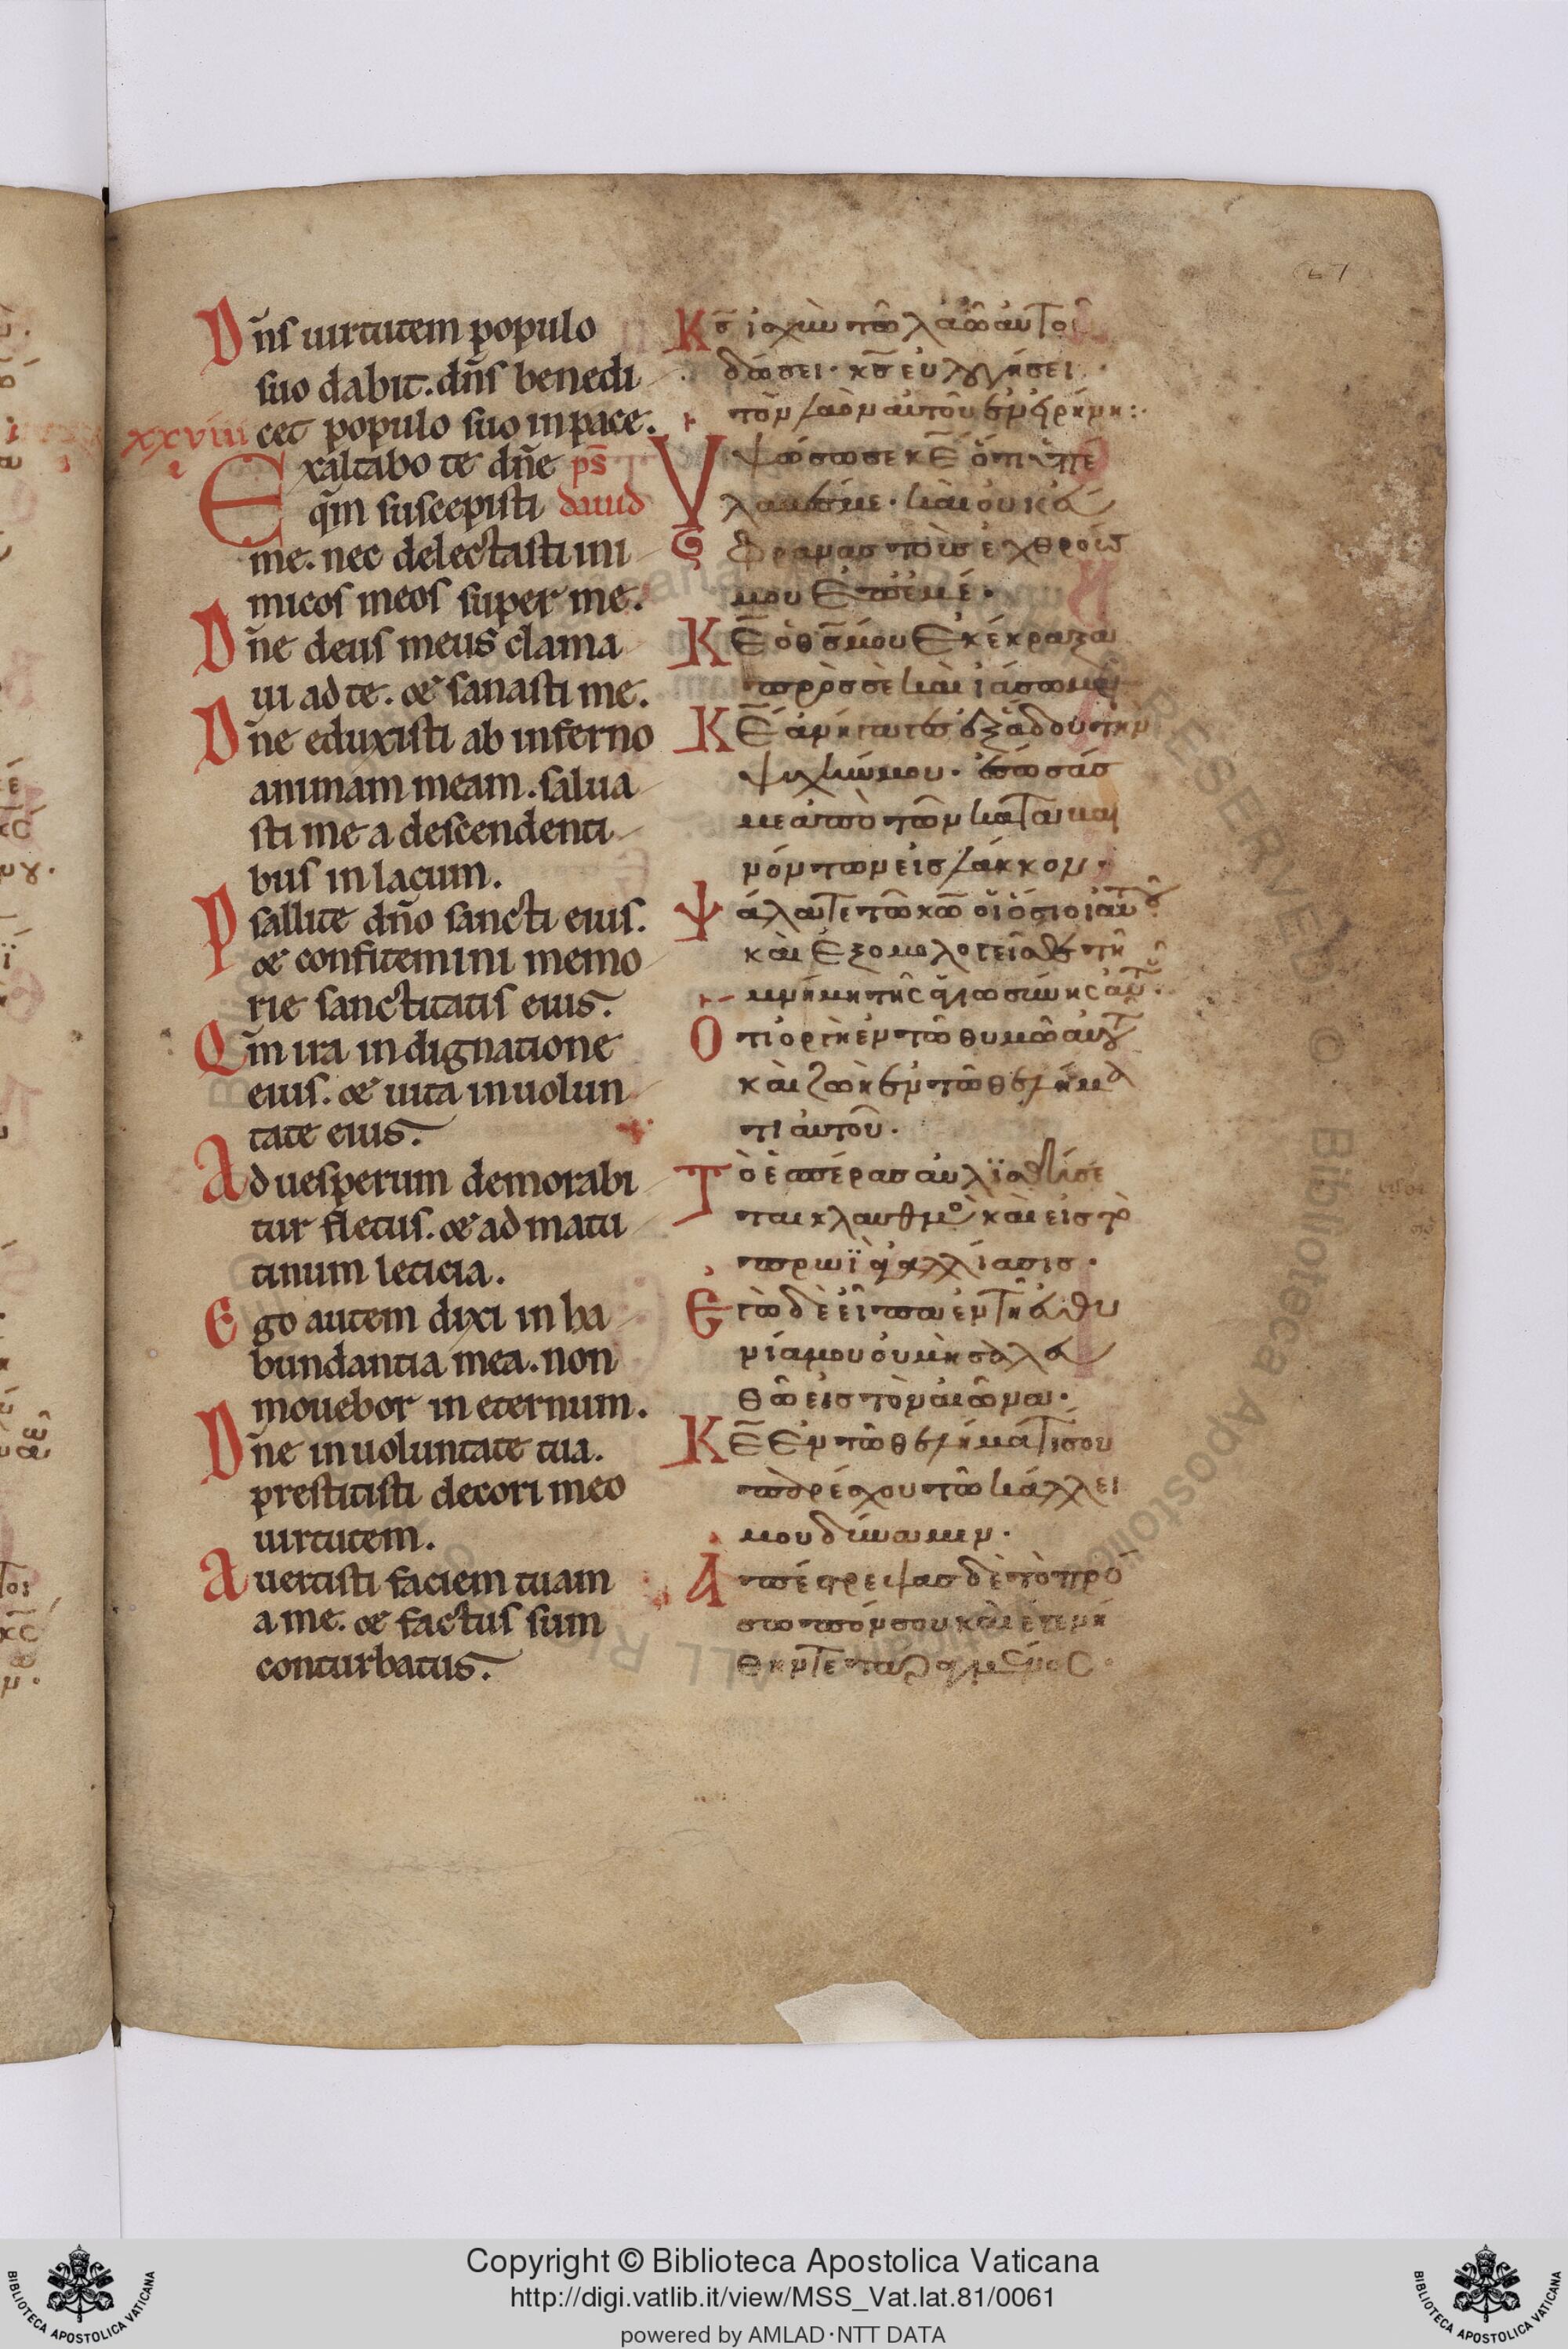 Dn̄s uirtutem populo
suo dabit. dn̄s benedi
cet populo suo in pace.
xxviiii
Exaltabo te dn̄e ps̄
qm̄ suscepisti dauid
me. nec delectasti ini
micos meos super me.
Dn̄e deus meus clama
ui ad te. & sanasti me.
Dn̄e eduxisti ab inferno
animam meam. salua
sti me a descendenti
bus in lacum.
Psallite dn̄o sancti eius.
& confitemini memo
rie sanctitatis eius.
Qm̄ ira in dignatione
eius. & uita in uolun
tate eius.
Ad uesperum demorabi
tur fletus. & ad matu
tinum leticia.
Ego autem dixi in ha
bundantia mea. non
mouebor in eternum.
Dn̄e in uoluntate tua.
prestitisti decori meo
uirtutem.
Auertisti faciem tuam
a me. & factus sum
conturbatus.
Κς̄ ἰσχὺν τῶ λαῶ αὐτοῦ
δώσει· κς̄ εὐλογήσει
τὸν λαὸν αὐτοῦ ἐν εἰρήνη:·
Υψώσω σε κε̄ ὅτι ὑπέ
λαβές με· καὶ οὐκ εὔ
φρανας τοὺς ἐχθρούς
μου ἐπ' ἐμέ·
Κε̄ ὁ θς̄ μου ἐκέκραξα
πρὸς σὲ καὶ ἰάσω με
Κε̄ ἀνήγαγες ἐξ ἅδου τὴν
ψυχήν μου· ἔσωσάς
με ἀπὸ τῶν καταβαι
νόντων εἰς λάκκον·
Ψάλατε τῶ κω̄ οἱ ὅσιοι αὐτοῦ
καὶ ἐξομολογεῖσθε τῆ
μνήμη τῆς ἁγιωσύνης αὐτοῦ·
Οτι ὀργὴ ἐν τῶ θυμῶ αὐτοῦ
καὶ ζωὴ ἐν τῶ θελήμα
τι αὐτοῦ·
Τὸ ἑσπέρας αὐλισθήσε
ται κλαυθμὸς καὶ εἰς τὸ
πρωῒ ἀγαλλίασις·
Εγὼ δὲ εἶπα ἐν τῆ εὐθη
νία μου οὐ μὴ σαλευ
θῶ εἰς τὸν αἰῶνα·
Κε̄ ἐν τῶ θελήματί σου
παρέσχου τῶ κάλλει
μου δύναμιν·
Απέστρεψας δὲ τὸ πρό
σωπόν σου καὶ ἐγενή
θην τεταραγμένος·
Copyright © Biblioteca Apostolica Vaticana
http://digi.vatlib.it/view/MSS_Vat.lat.81/0061
powered by AMLAD·NTT DATA
BIBLIOTECA APOSTOLICA VATICANA
BIBLIOTECA APOSTOLICA VATICANA